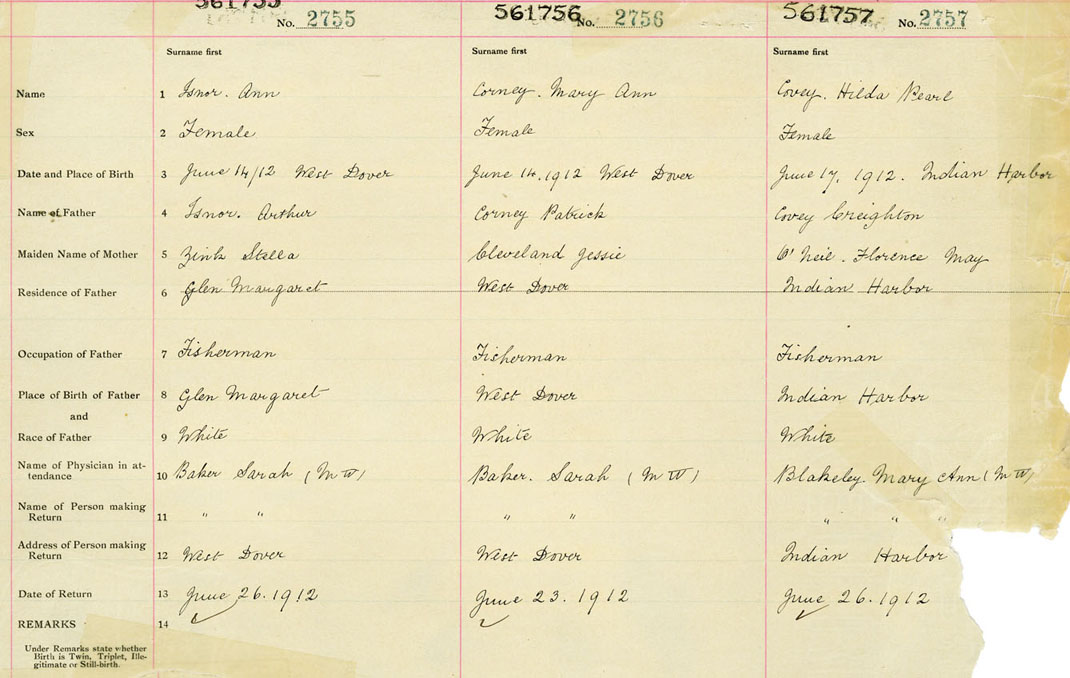 561755 561756 561757
No. 2755 No. 2756 No. 2757
Surname first Surname first Surname first
Name 1 Isnor. Ann Corney. Mary Ann Covey. Hilda Pearl
Sex 2 Female Female Female
Date and Place of Birth 3 June 14/12 West Dover June 14. 1912 West Dover June 17, 1912. Indian Harbor
Name of Father 4 Isnor. Arthur Corney Patrick Covey Creighton
Maiden Name of Mother 5 Zink Stella Cleveland Jessie O'Neil. Florence May
Residence of Father 6 Glen Margaret West Dover Indian Harbor
Occupation of Father 7 Fisherman Fisherman Fisherman
Place of Birth of Father 8 Glen Margaret West Dover Indian Harbor
and
Race of Father 9 White White White
Name of Physician in at-
tendance 10 Baker Sarah (M W) Baker. Sarah (M W) Blakeley. Mary Ann (M W)
Name of Person making
Return 11 " " " " " " "
Address of Person making
Return 12 West Dover West Dover Indian Harbor
Date of Return 13 June 26. 1912 June 23. 1912 June 26. 1912
REMARKS 14
Under Remarks state whether
Birth is Twin, Triplet, Ille-
gitimate or Still-birth.